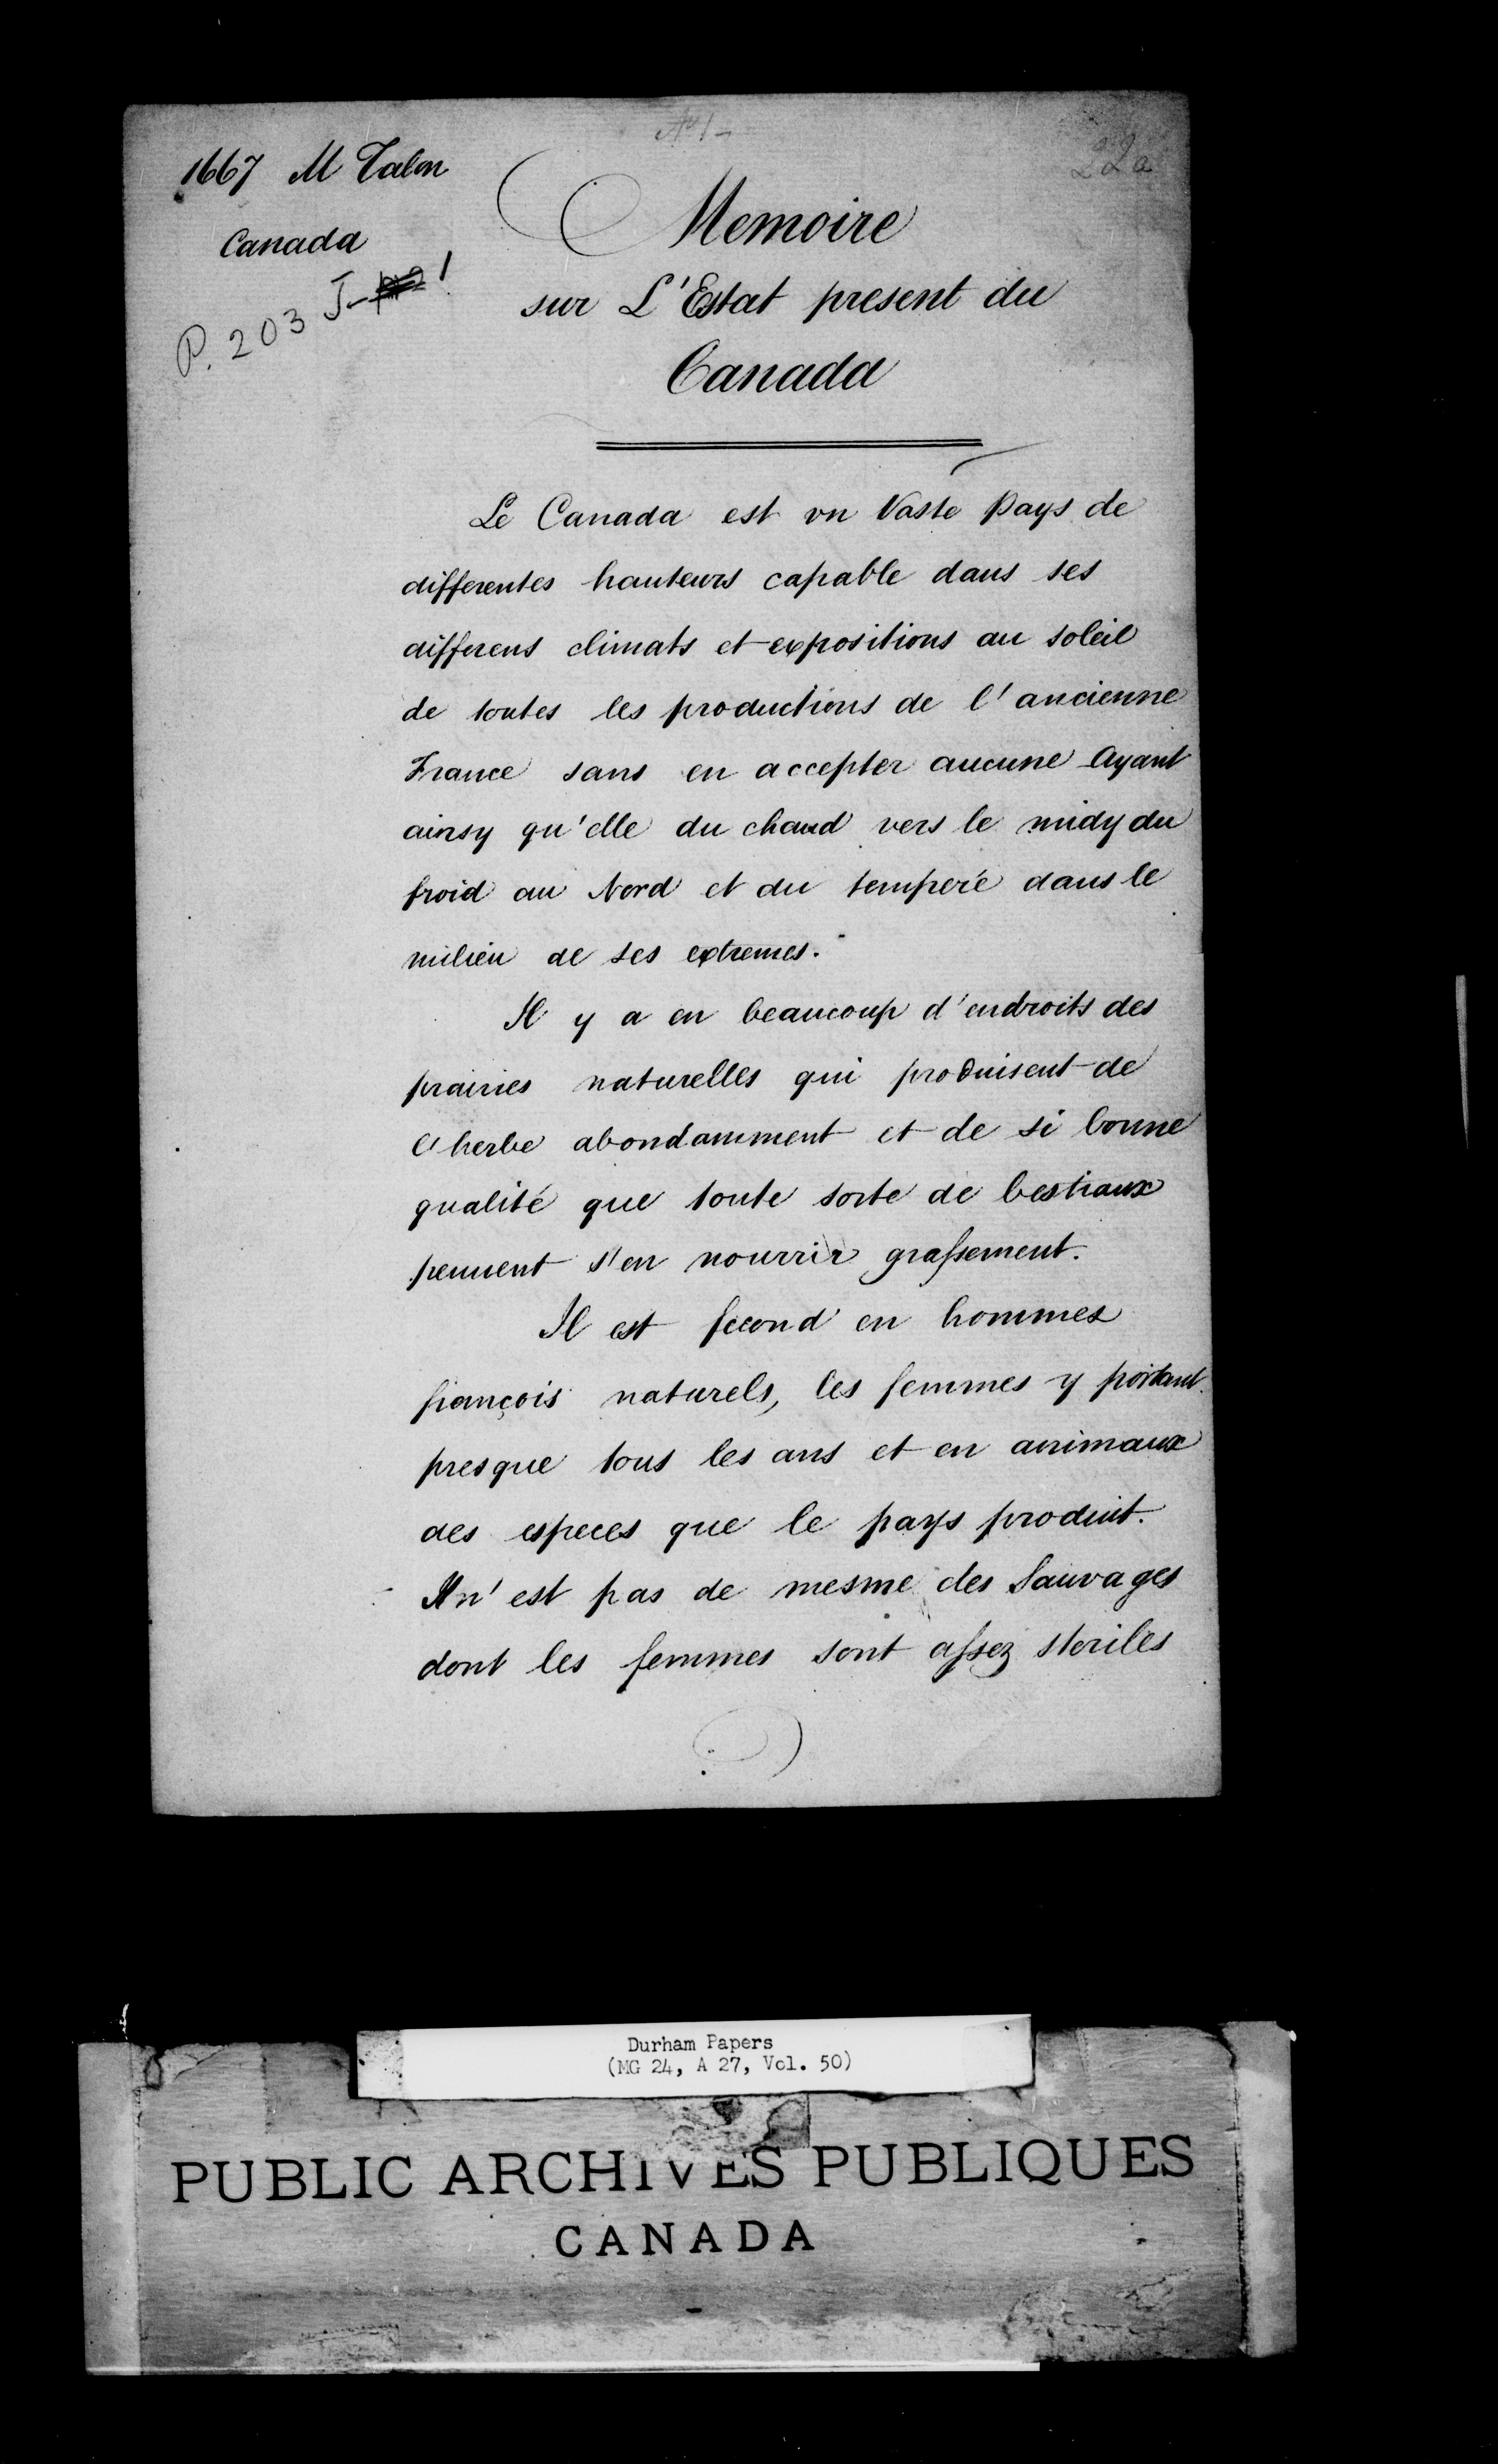 No 1-
22a
1667 M Talon
Canada
P. 203 J- 1
Memoire
sur L'Estat present du
Canada
Le Canada est vn Vaste Pays de
differentes hauteurs capable dans ses
differens climats et expositions au soleil
de toutes les productions de l'ancienne
France sans en accepter aucune Ayant
ainsy qu'elle du chaud vers le midy du
froid au Nord et du temperé dans le
milieu de ses extremes.
Il y a en beaucoup d'endroits des
prairies naturelles qui produisent de
l'herbe abondamment et de si bonne
qualité que toute sorte de bestiaux
peuuent s'en nourrir grassement.
Il est fecond en hommes
françois naturels, les femmes y portant
presque tous les ans et en animaux
des especes que le pays produit.
Il n'est pas de mesme des Sauvages
dont les femmes sont assez steriles
Durham Papers
(MG 24, A 27, Vol. 50)
PUBLIC ARCHIVES PUBLIQUES
CANADA